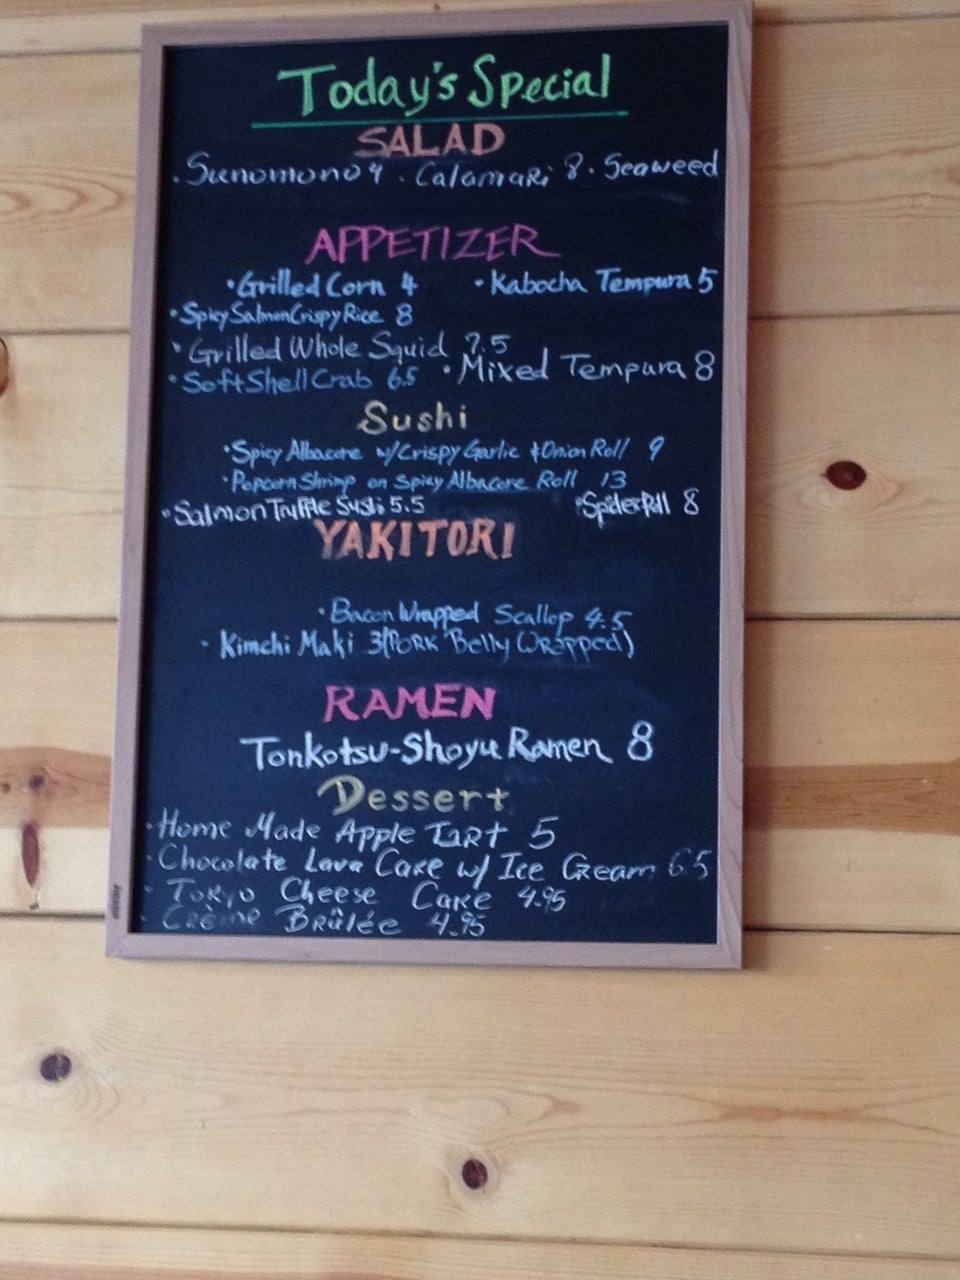 Today's Special
SALAD
· Sunomono 4 · Calamari 8 · Seaweed
APPETIZER
· Grilled Corn 4 · Kabocha Tempura 5
· Spicy Salmon Crispy Rice 8
· Grilled Whole Squid 7.5
· Mixed Tempura 8
· Soft Shell Crab 6.5
Sushi
· Spicy Albacore w/Crispy Garlic + Onion Roll 9
· Popcorn Shrimp on Spicy Albacore Roll 13
· Salmon Truffle Sushi 5.5 · Spider Roll 8
YAKITORI
· Bacon Wrapped Scallop 4.5
· Kimchi Maki 3 (Pork Belly Wrapped)
RAMEN
Tonkotsu-Shoyu Ramen 8
Dessert
· Home Made Apple Tart 5
· Chocolate Lava Cake w/ Ice Cream 6.5
· Tokyo Cheese Cake 4.95
· Crème Brûlée 4.95